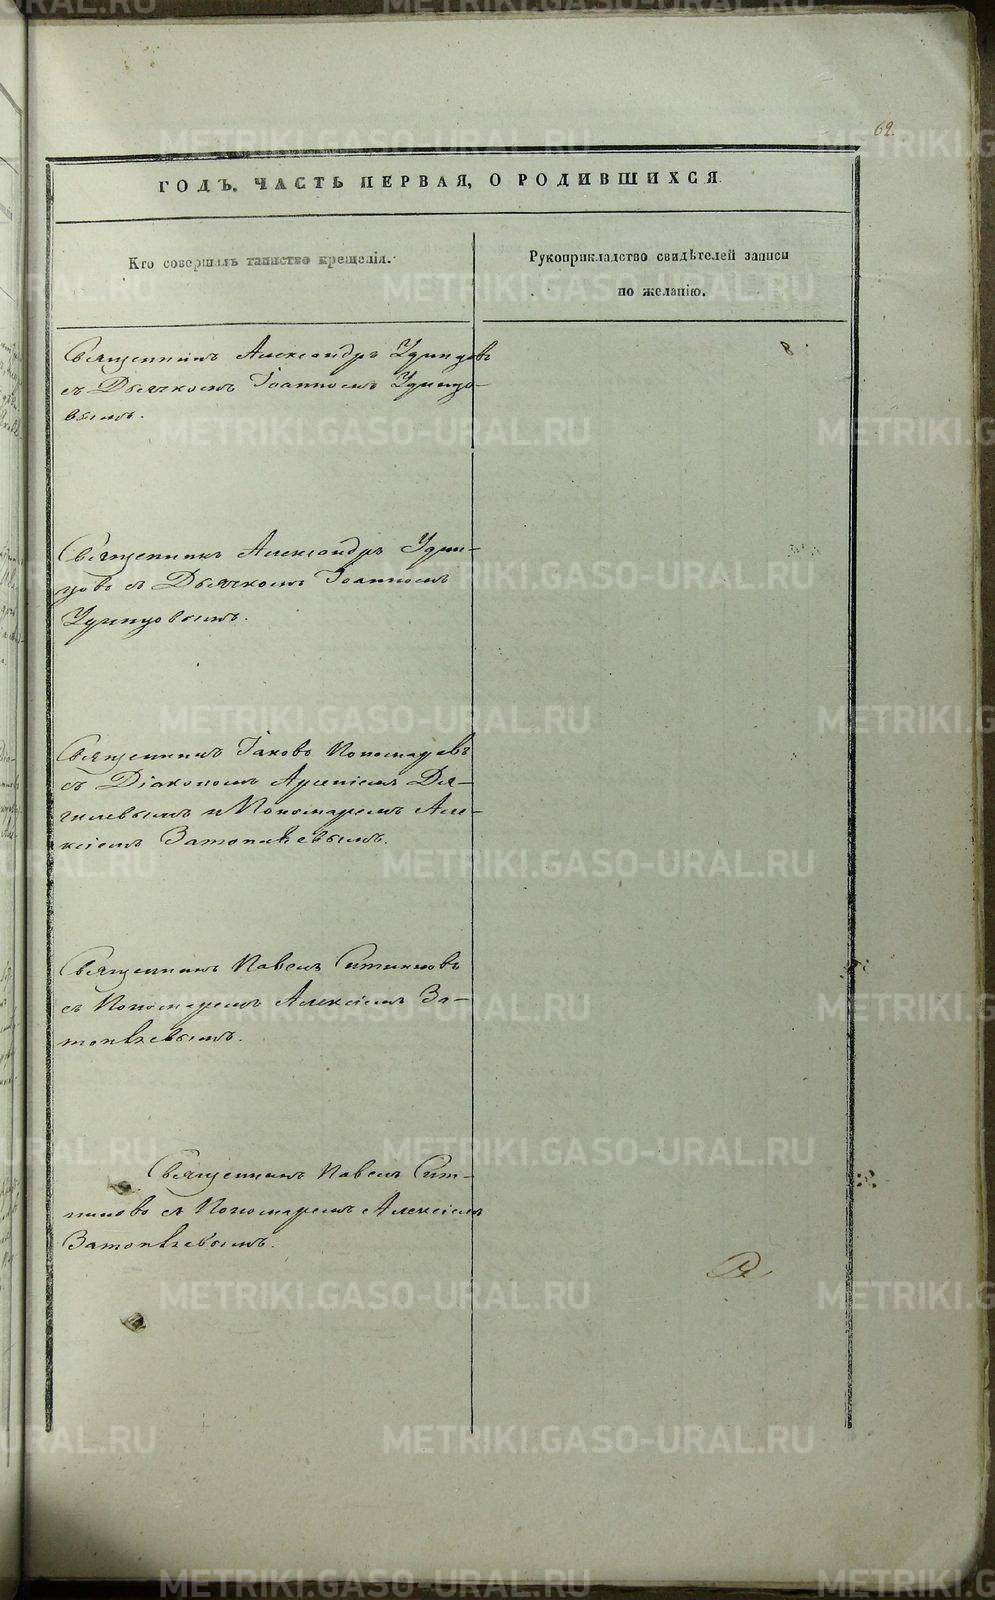 62.
ГОДЪ. ЧАСТЬ ПЕРВАЯ, О РОДИВШИХСЯ
Кто совершалъ таинство крещенія.
Рукоприкладство свидѣтелей записи
по желанію.
Священникъ Александръ Удинцовъ
съ Дьячкомъ Іоанномъ Удинцо-
вымъ.
Священникъ Александръ Удин-
цовъ съ Дьячкомъ Іоанномъ
Удинцовымъ.
Священникъ Іаковъ Пономаревъ
съ Діакономъ Арсеніемъ Дя-
гилевымъ и Пономаремъ Але-
ксіемъ Затопляевымъ.
Священникъ Павелъ Ситниковъ
съ Пономаремъ Алексіемъ За-
топляевымъ.
Священникъ Павелъ Сит-
никовъ съ Пономаремъ Алексіемъ
Затопляевымъ.
METRIKI.GASO-URAL.RU